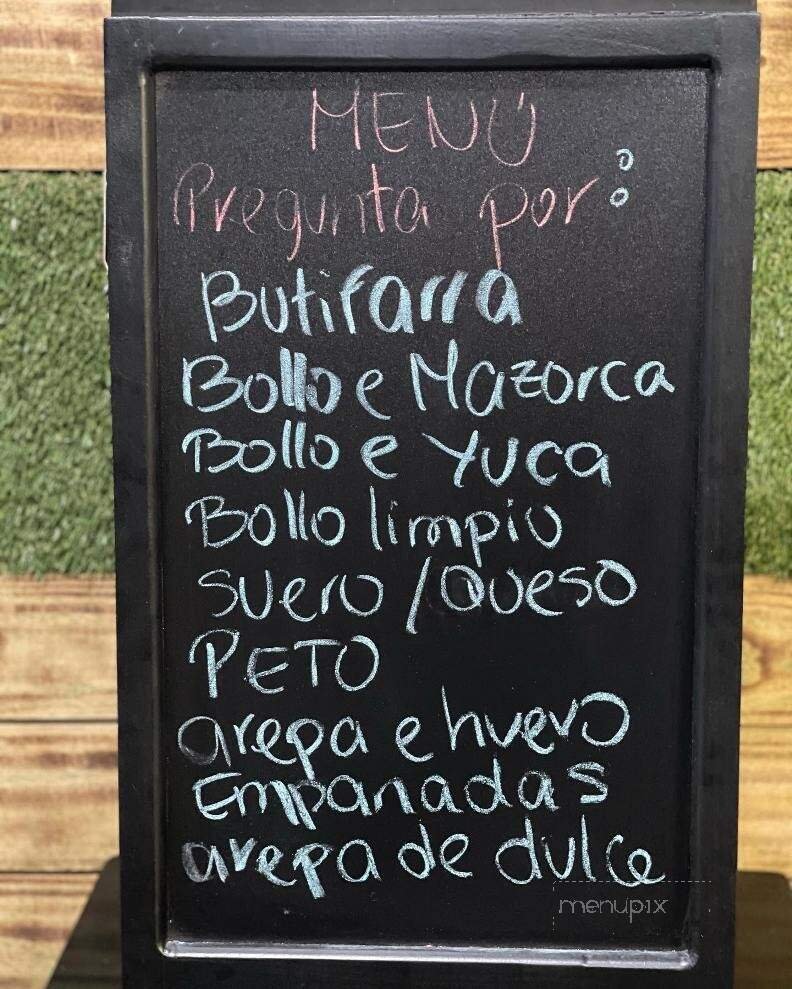 MENÚ
Pregunta por:
Butifarra
Bollo e Mazorca
Bollo e Yuca
Bollo limpio
suero / Queso
PETO
arepa e huevo
Empanadas
arepa de dulce
menupix